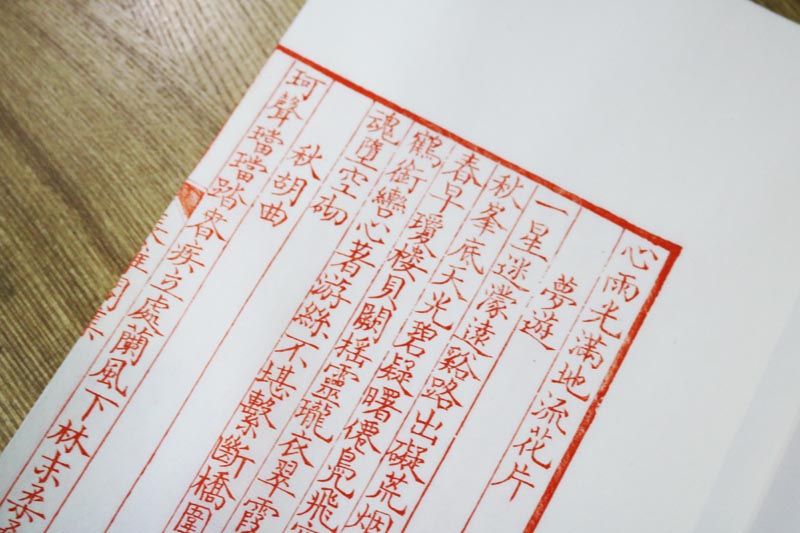 心雨光滿地流花片
夢遊
一星迷濛遠谿路出礙荒烟
秋峯底天光碧疑曙僊鳥飛
春早瓊樓貝闕搖靈瓏衣翠霞
鶴銜轡心著游絲不堪繫斷橋圍
魂墮空砌
秋胡曲
珂聲璫璫踏春疾立處蘭風下林末柔